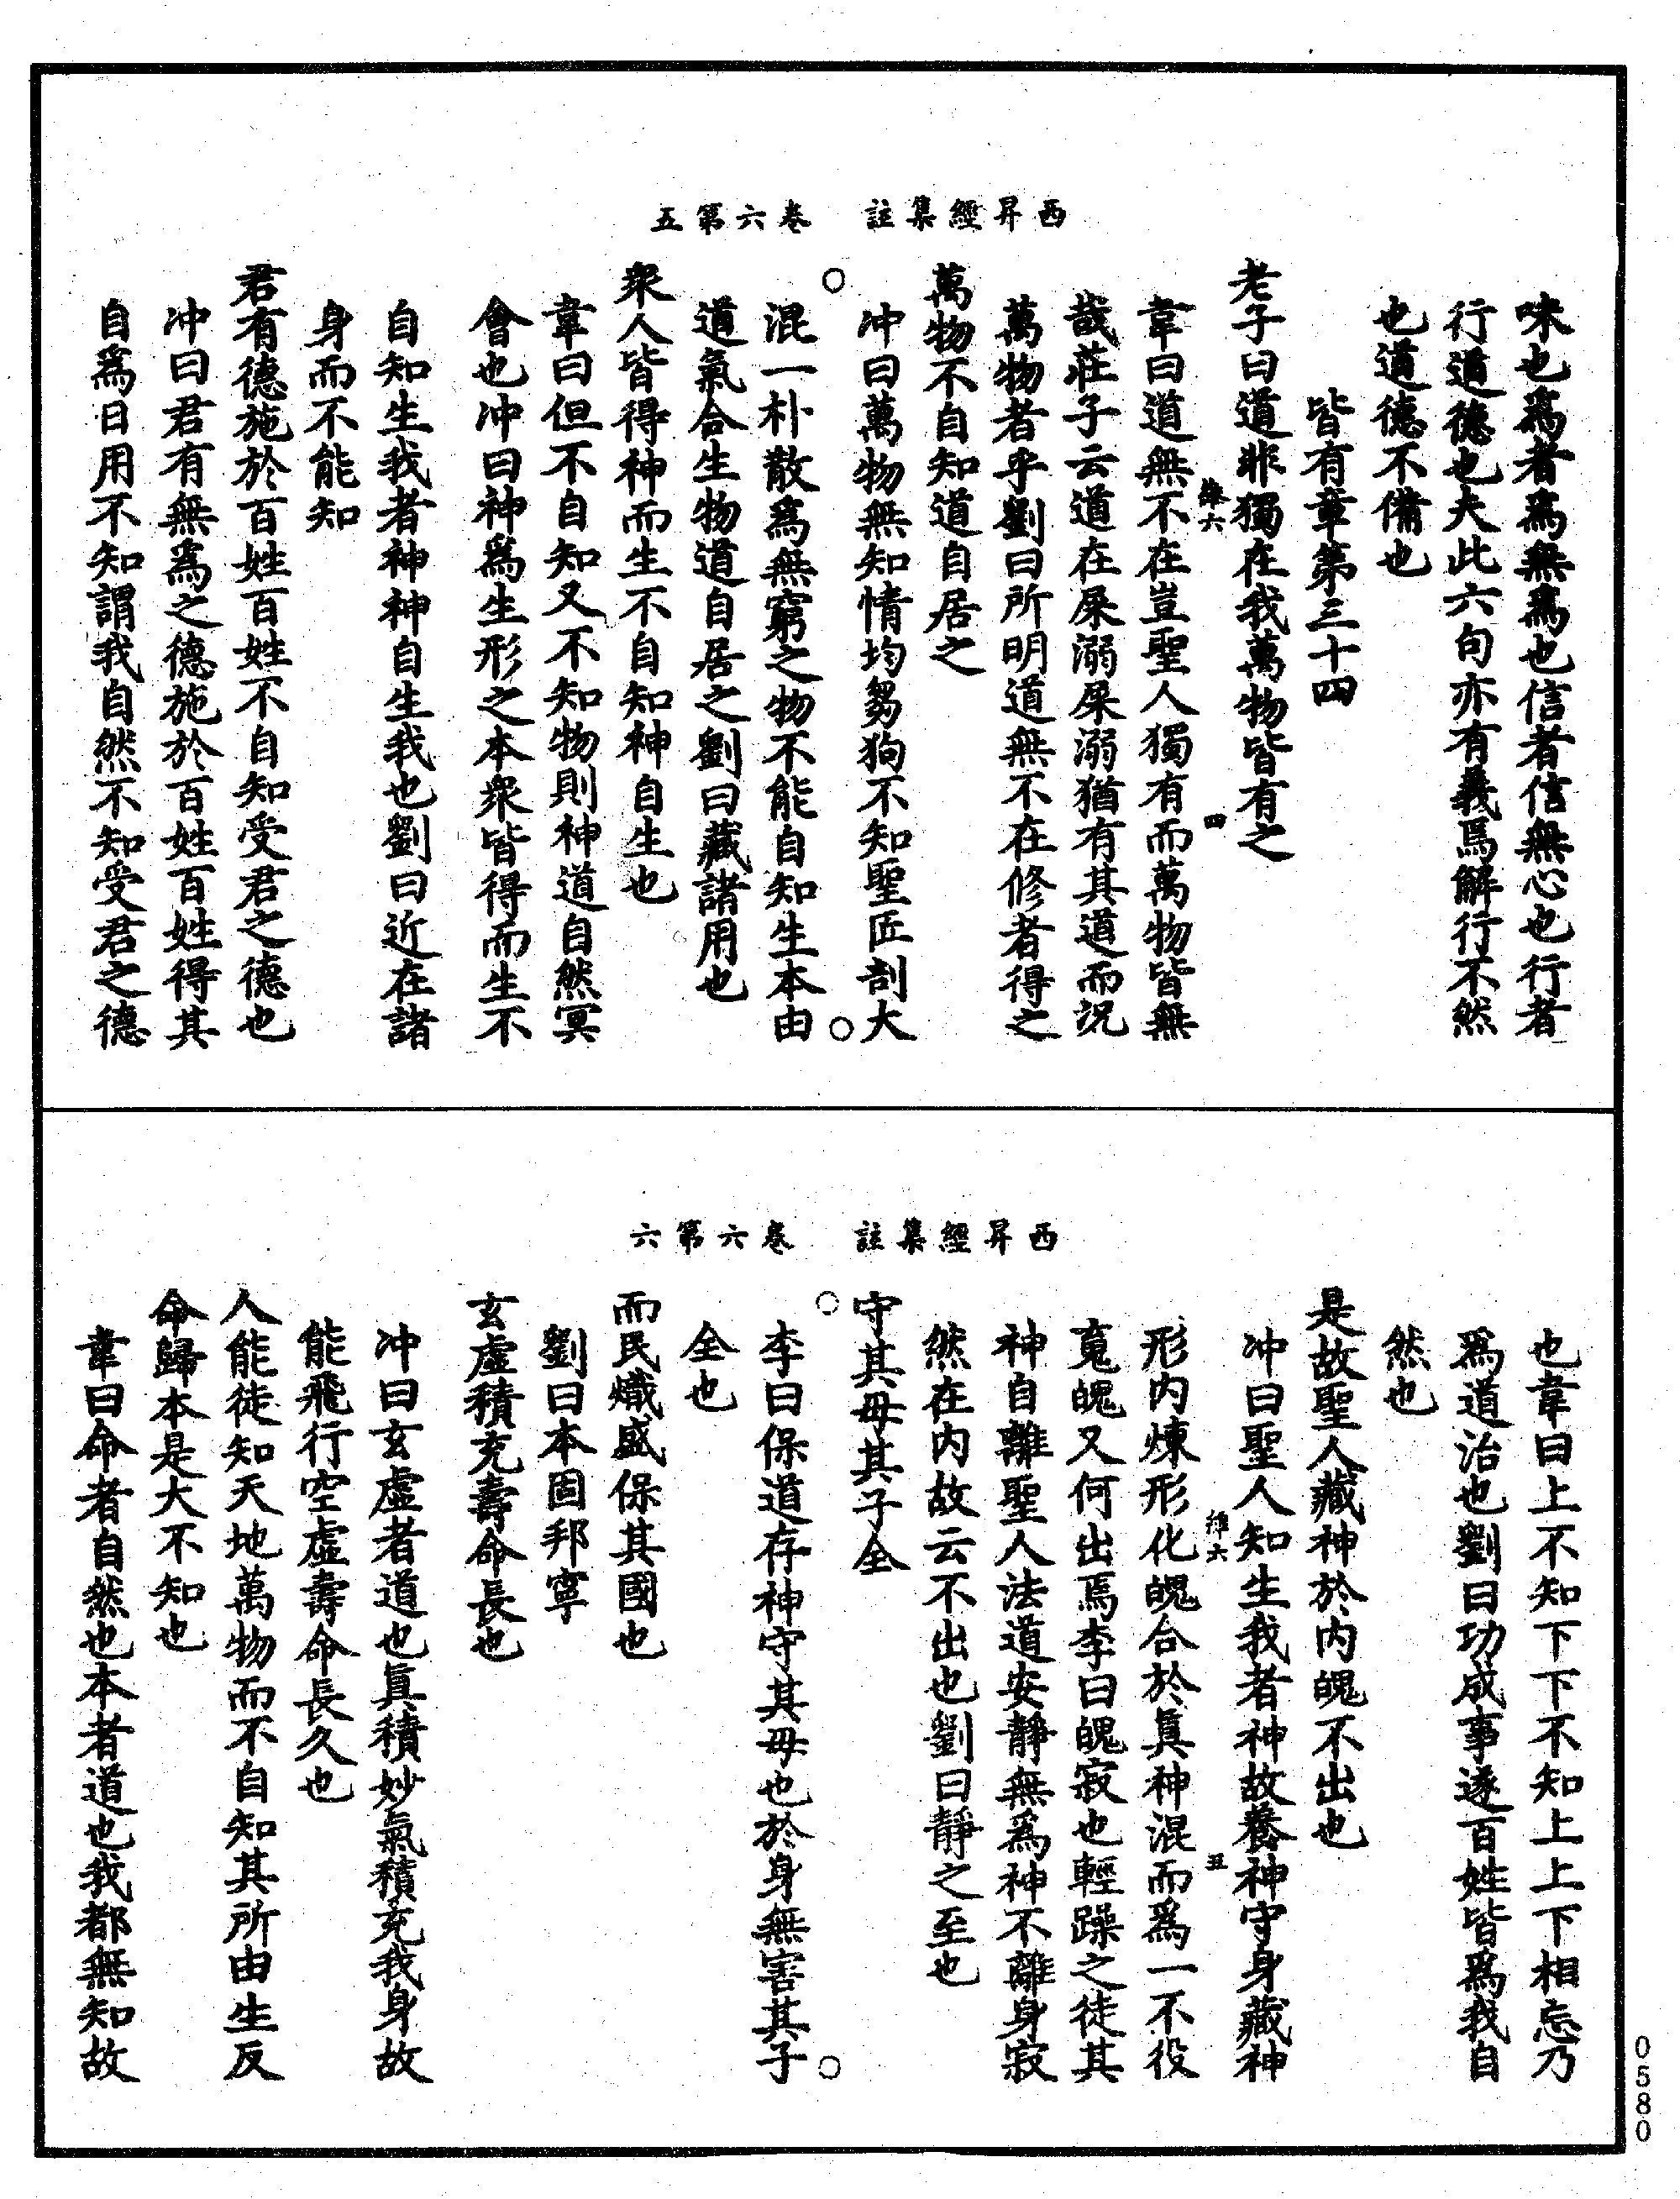 西昇經集註　卷六第五
味也爲者爲無爲也信者信無心也行者
行道德也夫此六句亦有義焉解行不然
也道德不備也
皆有章第三十四
維六　四
老子曰道非獨在我萬物皆有之
韋曰道無不在豈聖人獨有而萬物皆無
哉莊子云道在屎溺屎溺猶有其道而況
萬物者乎劉曰所明道無不在修者得之
萬物不自知道自居之
冲曰萬物無知情均芻狗不知聖匠剖大
混一朴散爲無窮之物不能自知生本由
道氣合生物道自居之劉曰藏諸用也
衆人皆得神而生不自知神自生也
韋曰但不自知又不知物則神道自然冥
會也冲曰神爲生形之本衆皆得而生不
自知生我者神神自生我也劉曰近在諸
身而不能知
君有德施於百姓百姓不自知受君之德也
冲曰君有無爲之德施於百姓百姓得其
自爲日用不知謂我自然不知受君之德
西昇經集註　卷六第六
也韋曰上不知下下不知上上下相忘乃
爲道治也劉曰功成事遂百姓皆爲我自
然也
是故聖人藏神於内魄不出也
維六　五
冲曰聖人知生我者神故養神守身藏神
形内煉形化魄合於眞神混而爲一不役
䰟魄又何出焉李曰魄寂也輕躁之徒其
神自離聖人法道安靜無爲神不離身寂
然在内故云不出也劉曰靜之至也
守其母其子全
李曰保道存神守其母也於身無害其子
全也
而民熾盛保其國也
劉曰本固邦寧
玄虛積充壽命長也
冲曰玄虛者道也眞積妙氣積充我身故
能飛行空虛壽命長久也
人能徒知天地萬物而不自知其所由生反
命歸本是大不知也
韋曰命者自然也本者道也我都無知故
0580